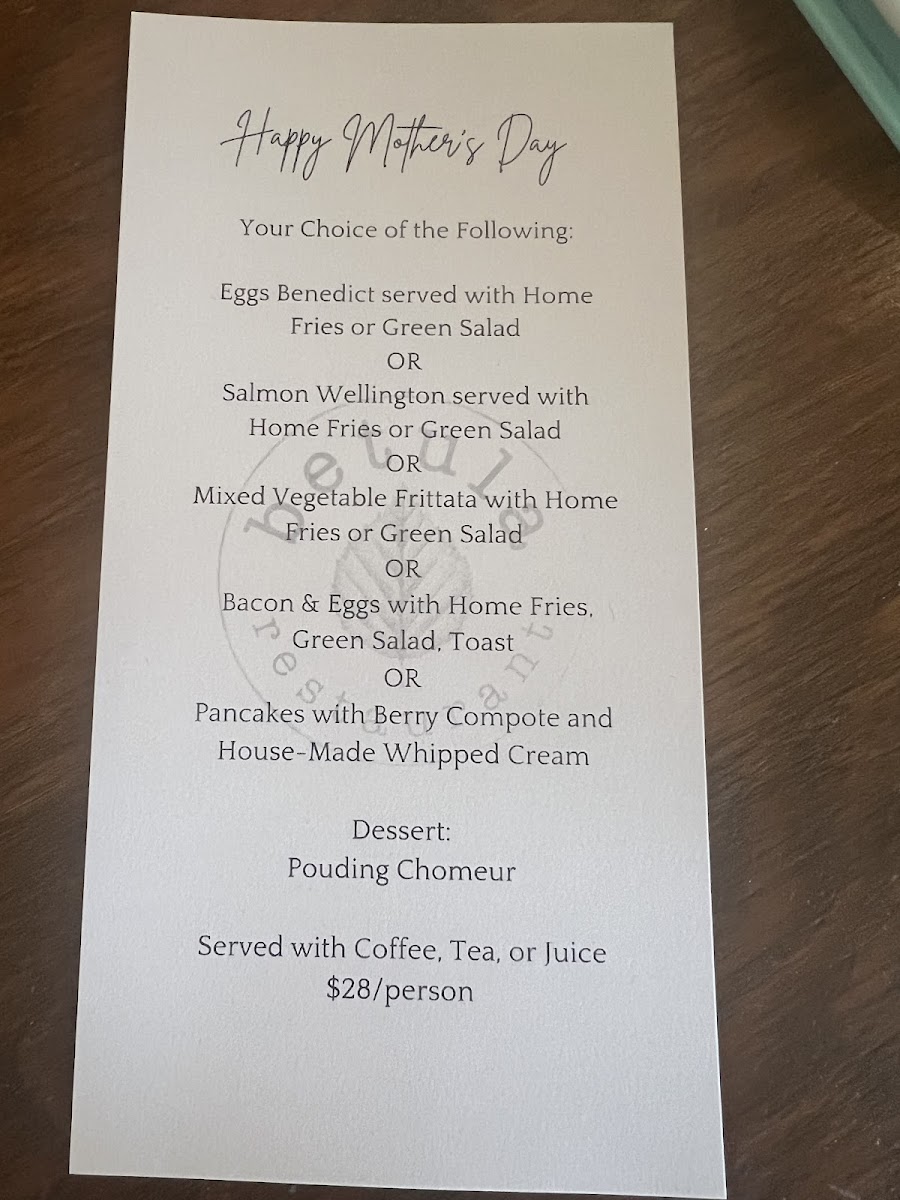 Happy Mother's Day
Your Choice of the Following:
Eggs Benedict served with Home
Fries or Green Salad
OR
Salmon Wellington served with
Home Fries or Green Salad
OR
Mixed Vegetable Frittata with Home
Fries or Green Salad
OR
Bacon & Eggs with Home Fries,
Green Salad, Toast
OR
Pancakes with Berry Compote and
House-Made Whipped Cream
Dessert:
Pouding Chomeur
Served with Coffee, Tea, or Juice
$28/person
betula
restaurant